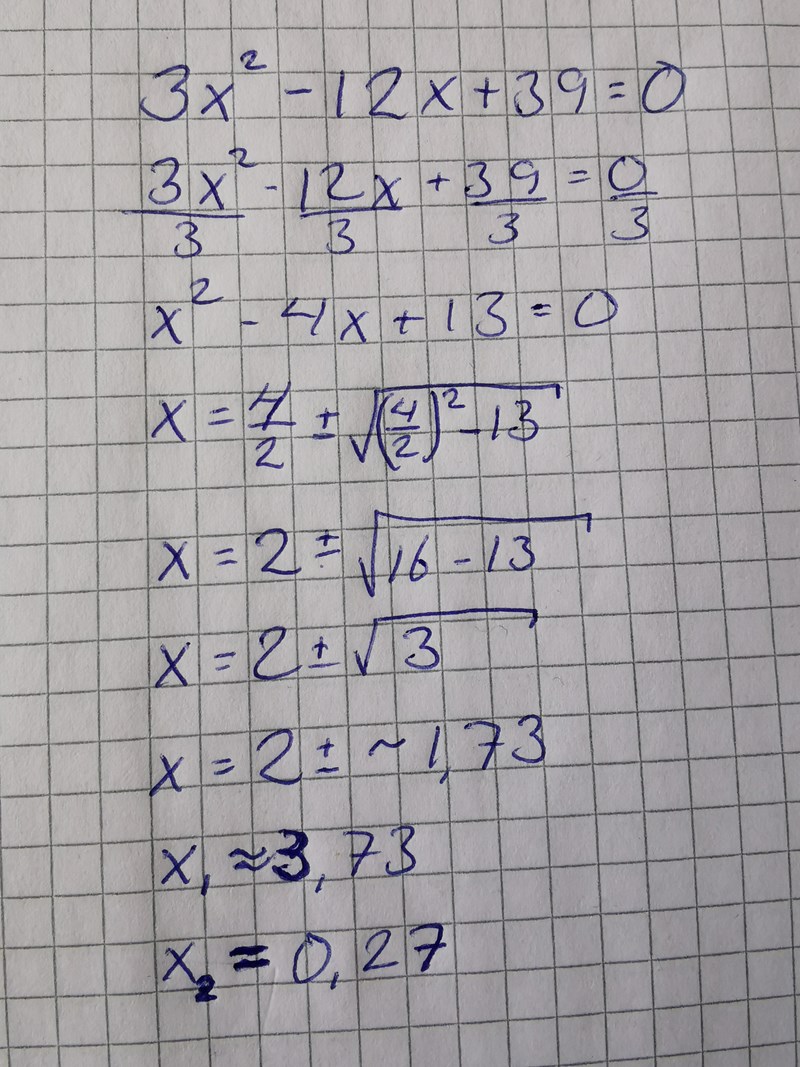 3x² - 12x + 39 = 0
3x²/3 - 12x/3 + 39/3 = 0/3
x² - 4x + 13 = 0
x = 4/2 ± √((4/2)² - 13)
x = 2 ± √(16 - 13)
x = 2 ± √3
x = 2 ± ~1,73
x₁ ≈ 3,73
x₂ = 0,27